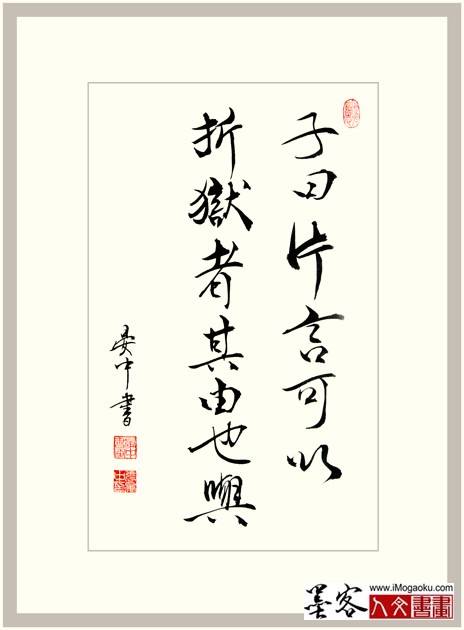 子曰片言可以
折獄者其由也與
晏中書
墨客
www.iMogaoku.com
人文書畫